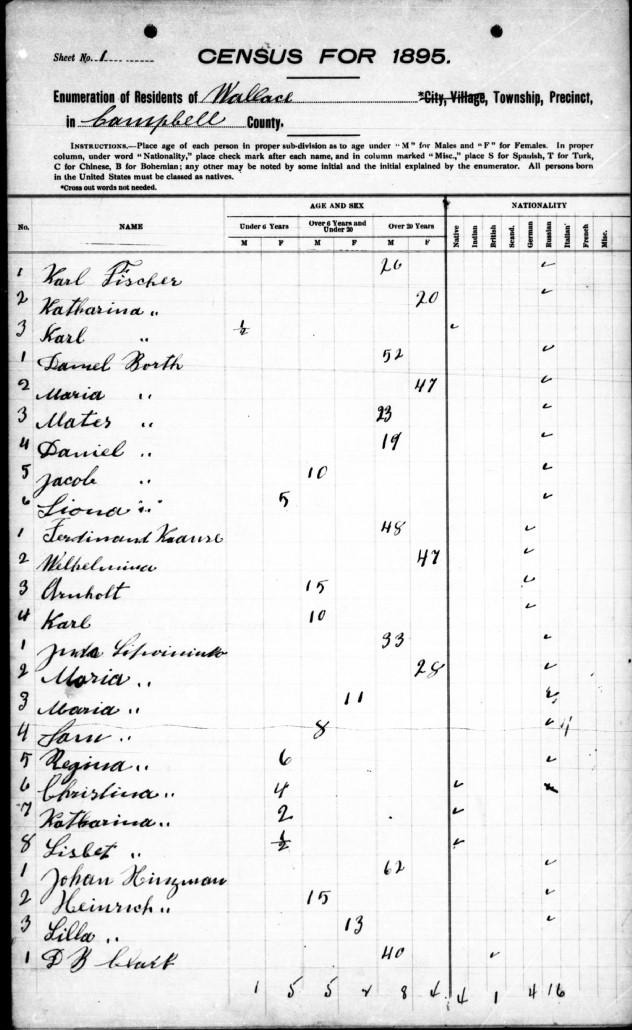 Sheet No. 1
CENSUS FOR 1895.
Enumeration of Residents of Wallace *City, Village, Township, Precinct,
in Campbell County.
INSTRUCTIONS.—Place age of each person in proper sub-division as to age under "M" for Males and "F" for Females. In proper
column, under word "Nationality," place check mark after each name, and in column marked "Misc.," place S for Spanish, T for Turk,
C for Chinese, B for Bohemian; any other may be noted by some initial and the initial explained by the enumerator. All persons born
in the United States must be classed as natives.
*Cross out words not needed.
AGE AND SEX NATIONALITY
No. NAME Under 6 Years Over 6 Years and Under 20 Over 20 Years Native Indian British Scand. German Russian Italian French Misc.
M F M F M F
1 Karl Fischer 26 ✓
2 Katharina " 20 ✓
3 Karl " ½ ✓
1 Daniel Borth 52 ✓
2 Maria " 47 ✓
3 Mates " 23 ✓
4 Daniel " 19 ✓
5 Jacob " 10 ✓
6 Liona " 5 ✓
1 Ferdinand Krause 48 ✓
2 Wilhelmina 47 ✓
3 Arnholt 15 ✓
4 Karl 10 ✓
1 33 ✓
2 Maria " 28 ✓
3 Maria " 11 ✓
4 Sam " 8 ✓
5 Regina " 6 ✓
6 Christina " 4 ✓
7 Katharina " 2 ✓
8 Lisbet " ½ ✓
1 Johan Hinzman 62 ✓
2 Heinrich " 15 ✓
3 Lilla " 13 ✓
1 D B Clark 40 ✓
1 5 5 2 8 4 4 1 4 16